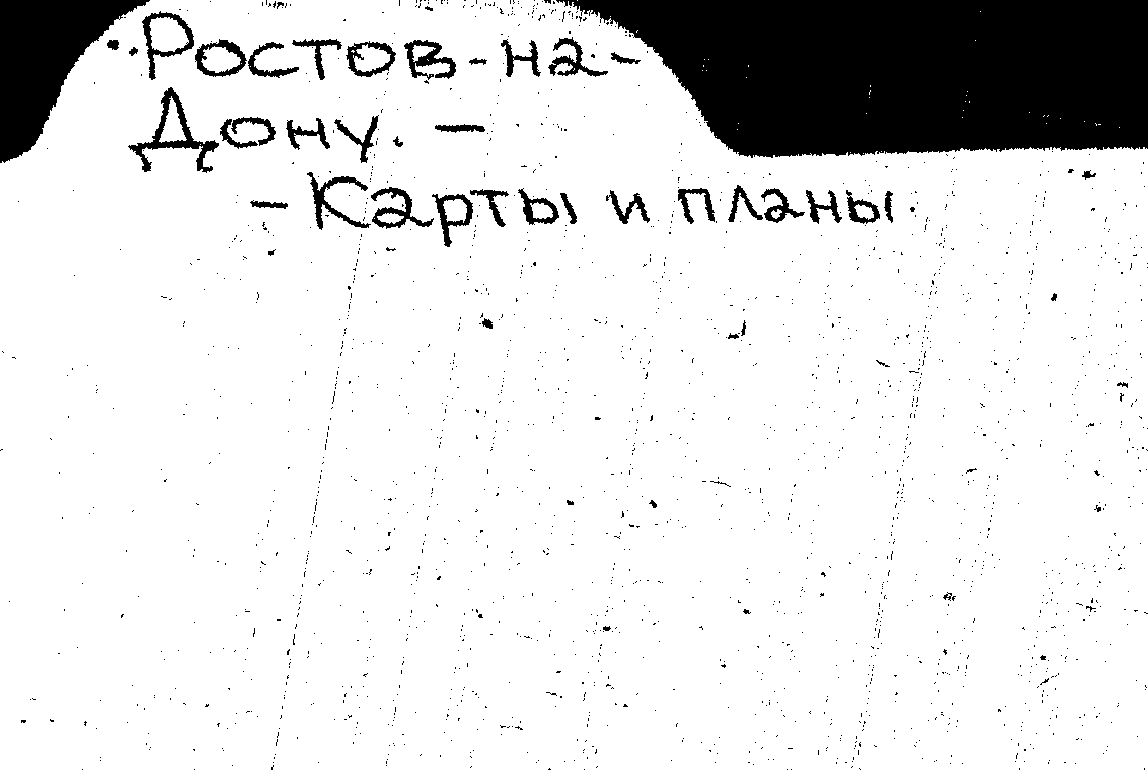 Ростов-на-
Дону. –
– Карты и планы.